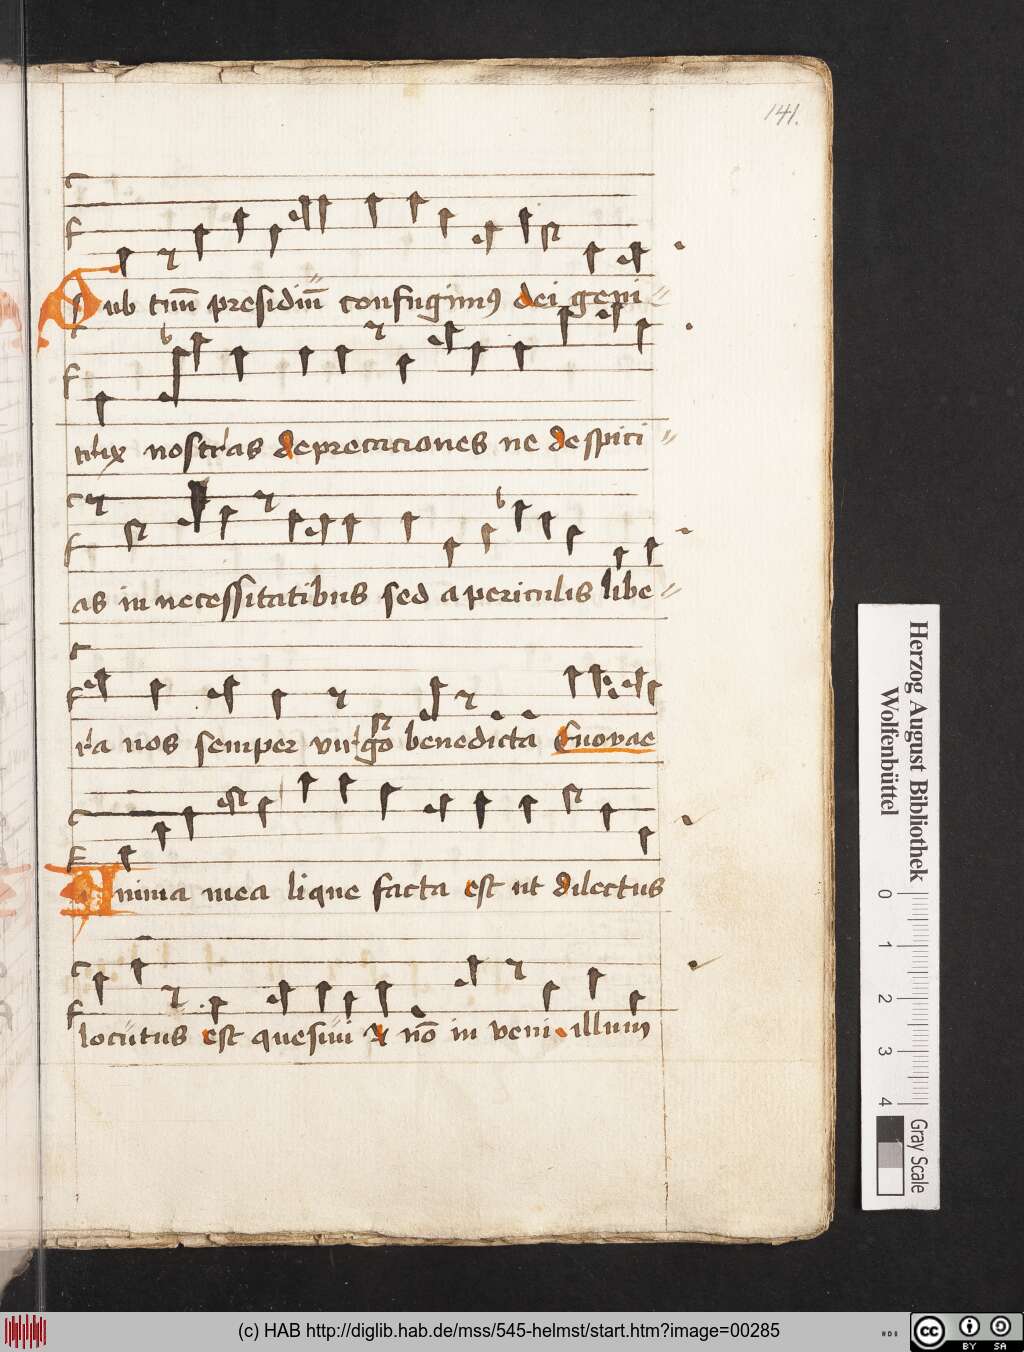 141.
Sub tuū presidiū confugimꝰ dei geni
trix nostras deprecaciones ne despici
as in necessitatibus sed a periculis libe
ra nos semper virgo benedicta Euovae
Anima mea lique facta est ut dilectus
locutus est quesiui & nō in veni illum
Herzog August Bibliothek
Wolfenbüttel
0 1 2 3 4
Gray Scale
(c) HAB http://diglib.hab.de/mss/545-helmst/start.htm?image=00285
cc BY SA